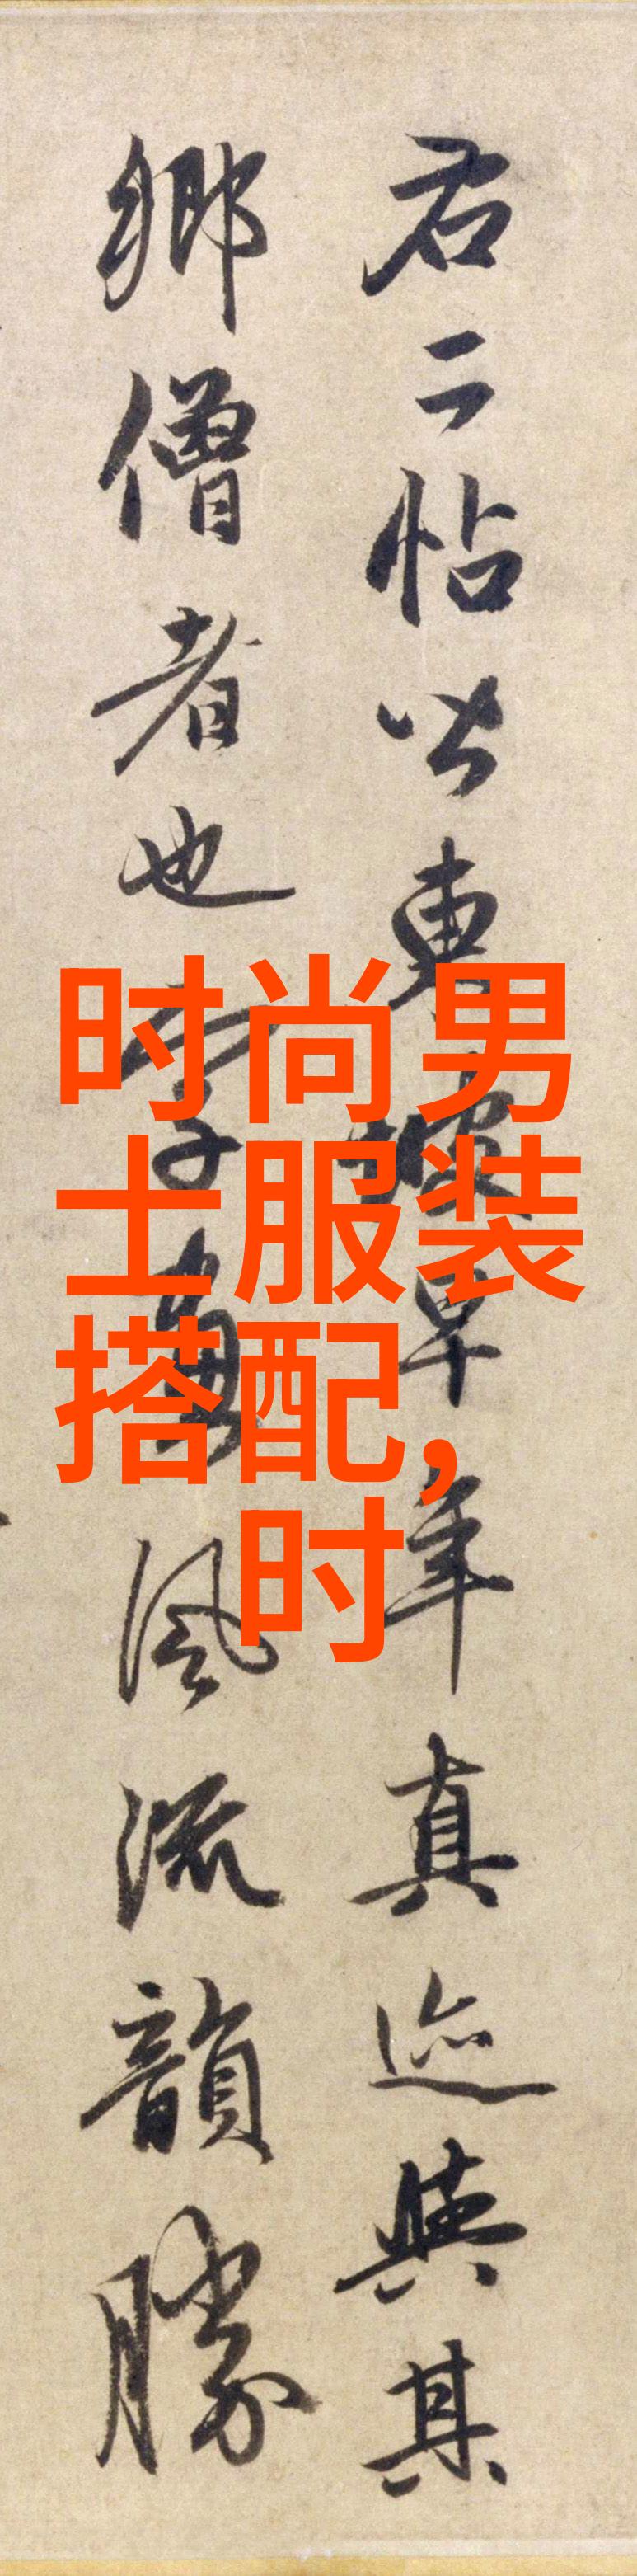 右二帖皆東坡早年真迹與其
鄉僧者也字畫風流韻勝
时尚男
士服装
搭配,
时